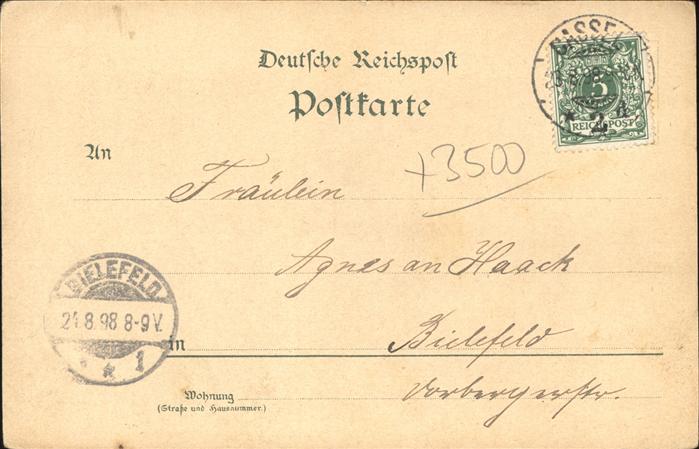 Deutsche Reichspost
Postkarte
CASSEL
5
REICHSPOST
* 2
An
Fräulein
+3500
Agnes an Haack
BIELEFELD
21.8.98 8-9V.
* * 1
in Bielefeld
Wohnung Vorbergerstr.
(Straße und Hausnummer.)